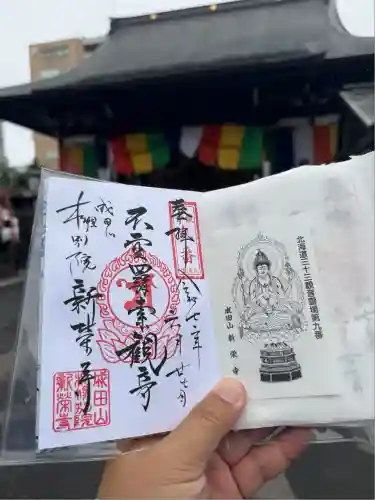 奉拝
令和七年六月廿七日
不空羂索観音
成田山
札幌別院
新栄寺
成田山
札幌別院
新栄寺
北海道三十三観音霊場第九番
成田山 新栄寺